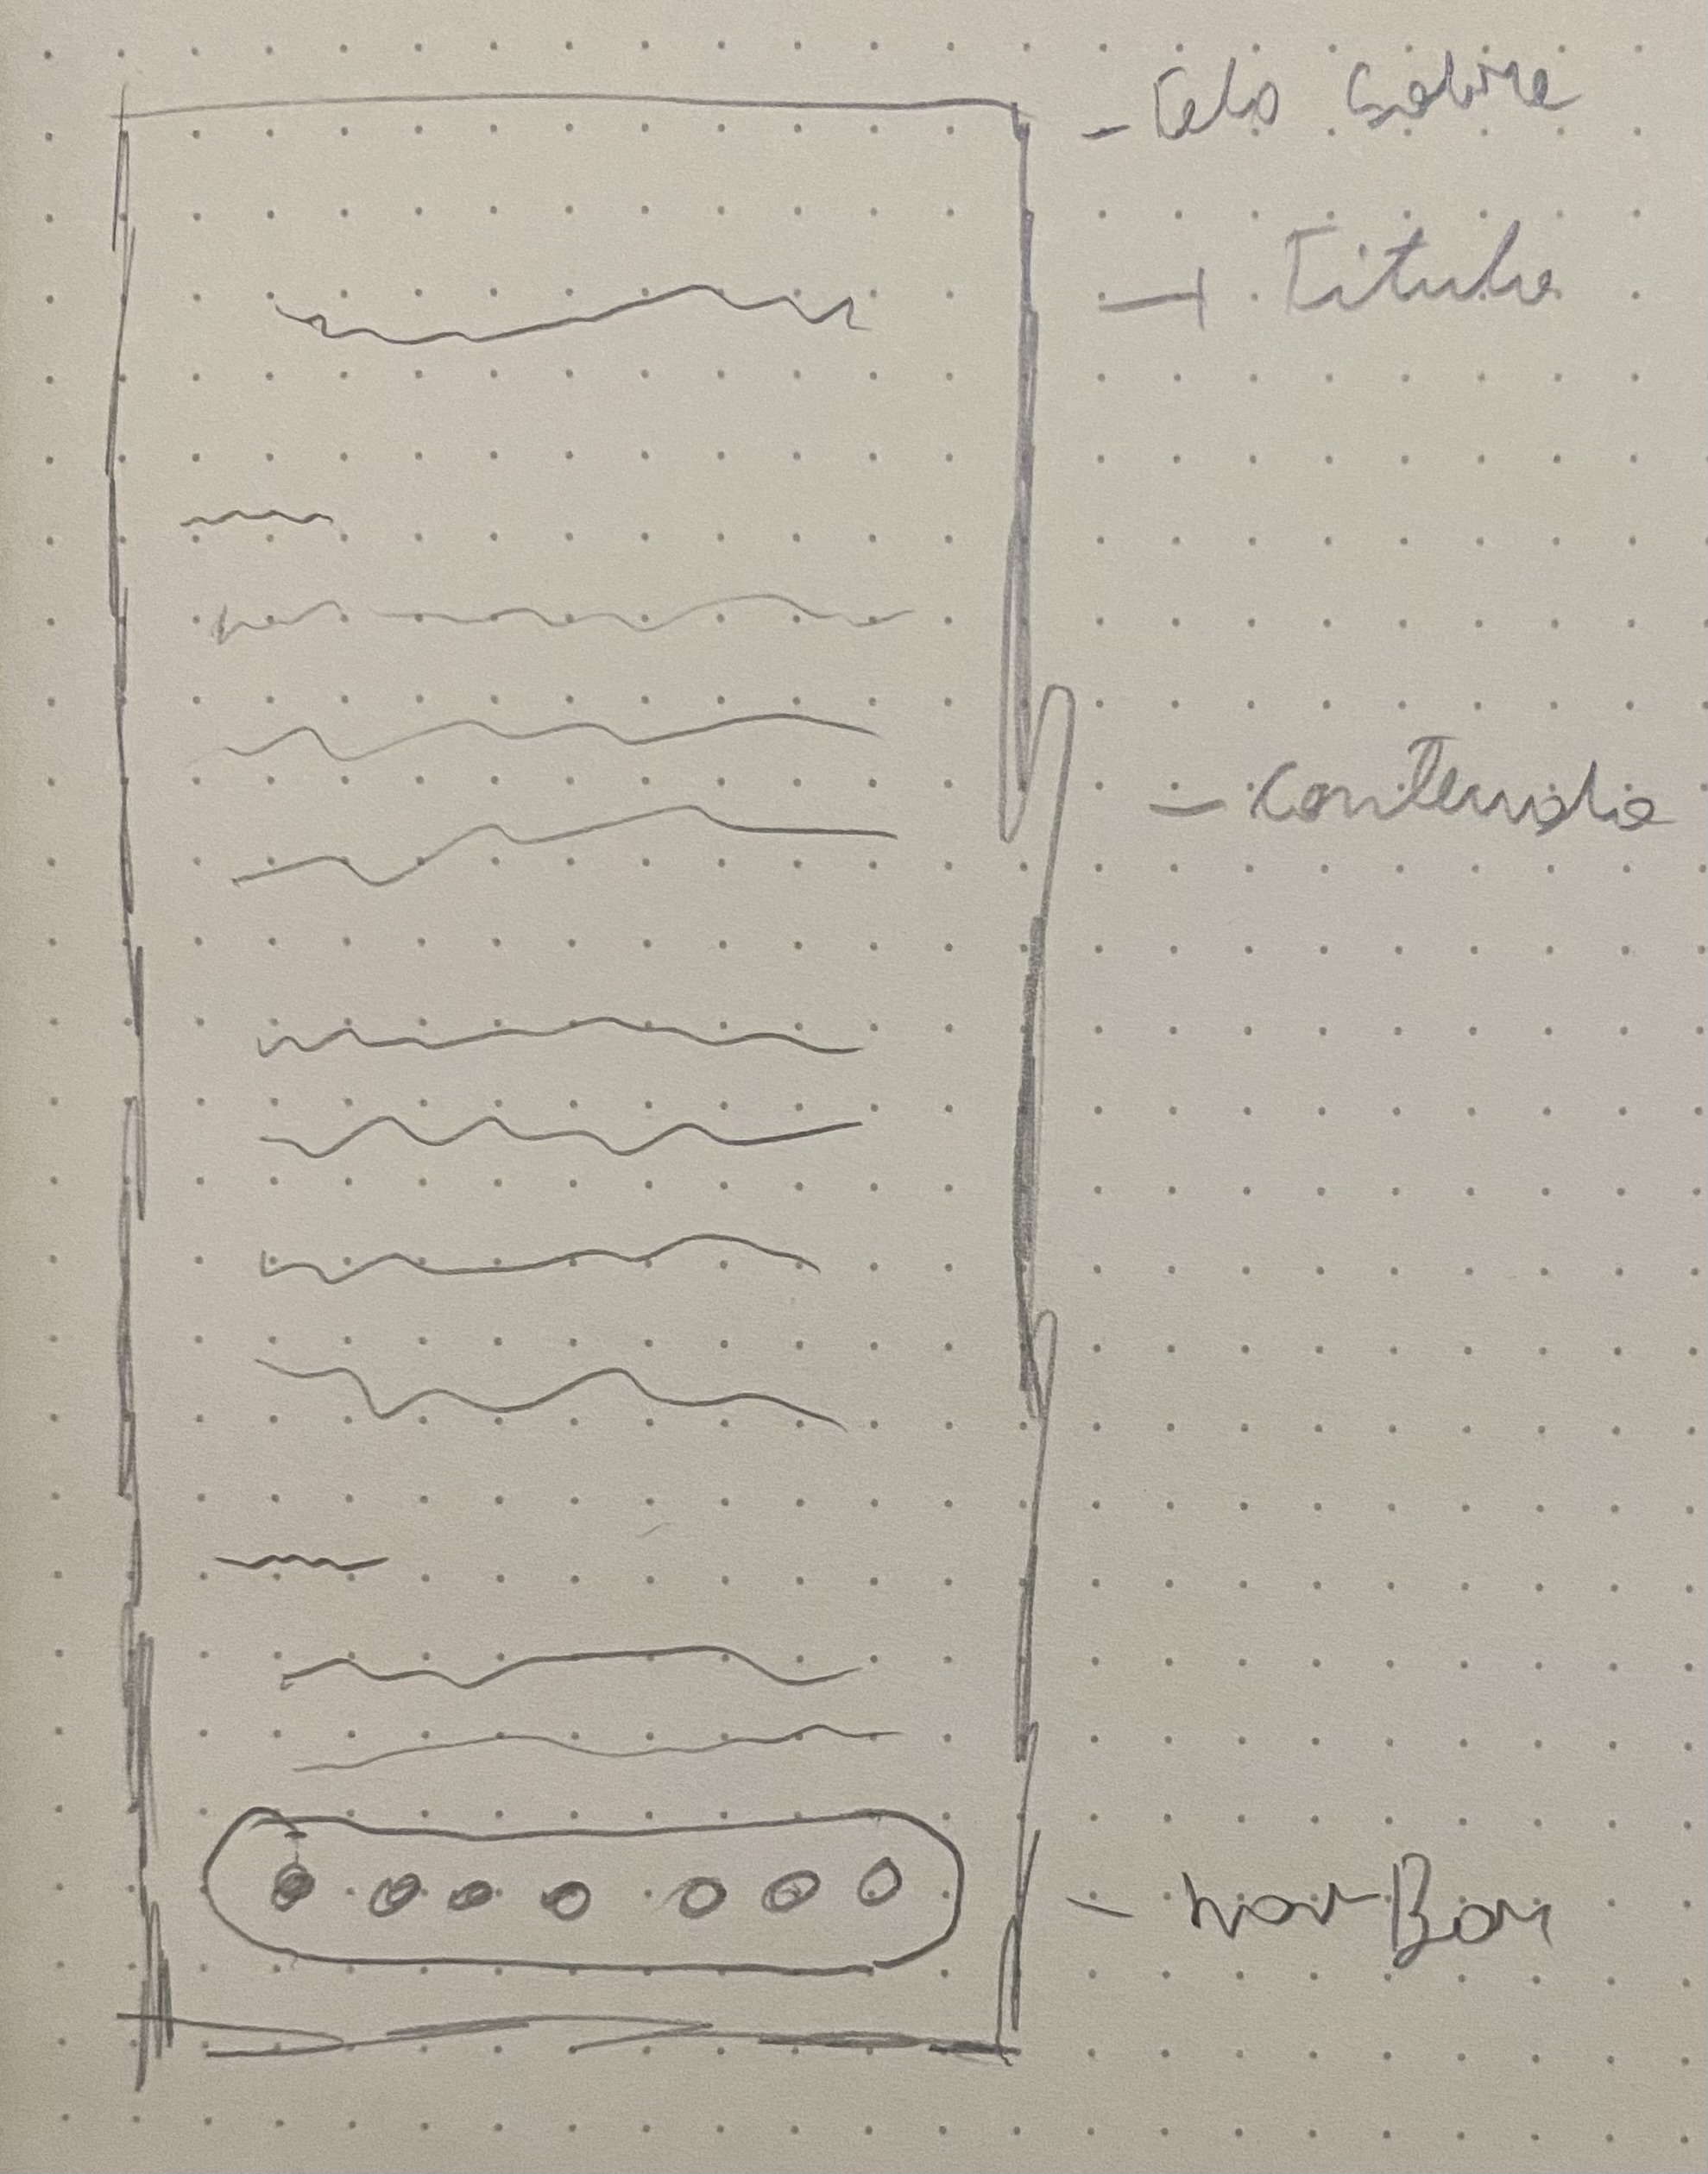 - Tela Sobre
- Titulo
- Conteudo
- NavBar